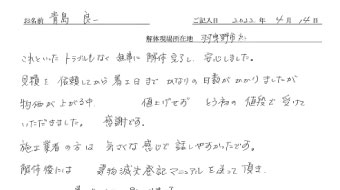 お名前 青島 良一 ご記入日 2022年4月14日
解体現場所在地 羽曳野市
これといったトラブルもなく無事に解体完了し、安心しました。
見積を依頼してから着工日までかなりの日数がかかりましたが
物価が上がる中 値上げせず とう初の値段で受けて
いただきました。 感謝です。
施工業者の方は 気さくな感じで 話しやすかったです。
解体後には 建物滅失登記マニュアルを送って頂き